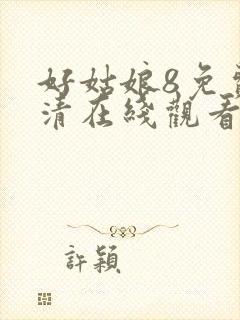 好姑娘8免費
清在綫觀看
許穎